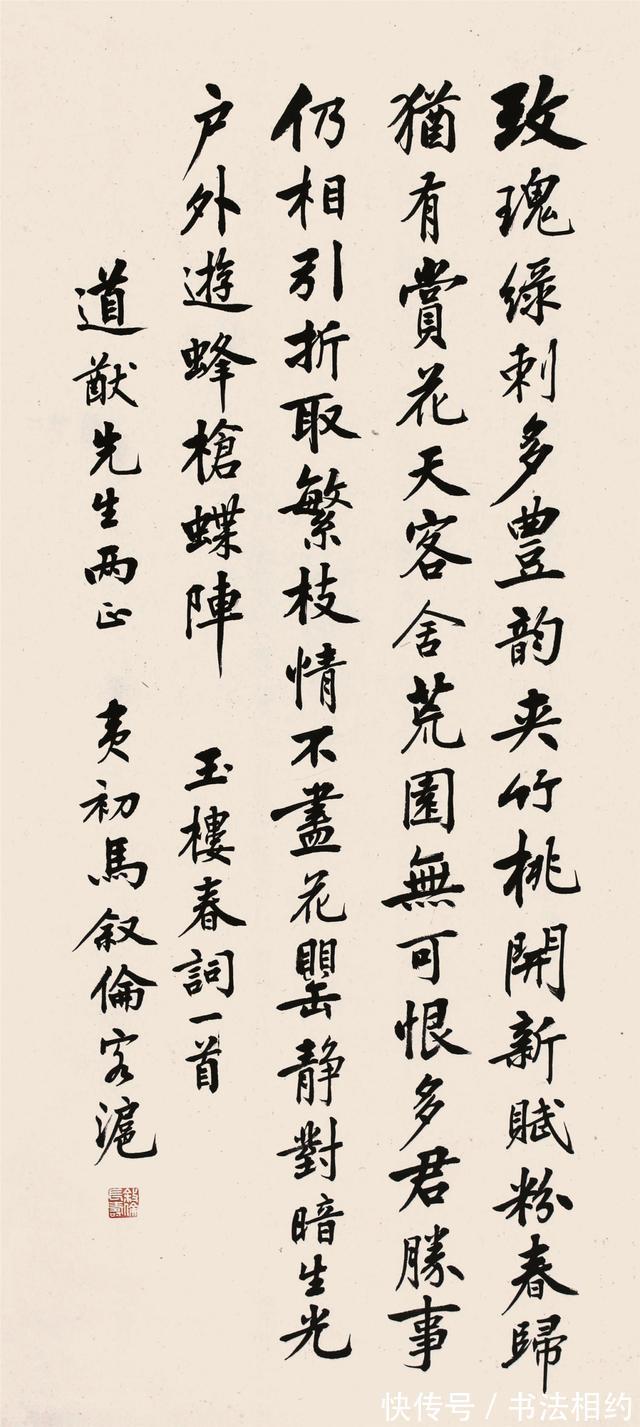 玫瑰綠刺多豊韵夾竹桃開新賦粉春歸
猶有賞花天客舍荒園無可恨多君勝事
仍相引折取繁枝情不盡花罌静對暗生光
户外遊蜂槍蝶陣 玉樓春詞一首
道猷先生兩正 夷初馬叙倫客滬
叙倫長壽
快传号/书法相约